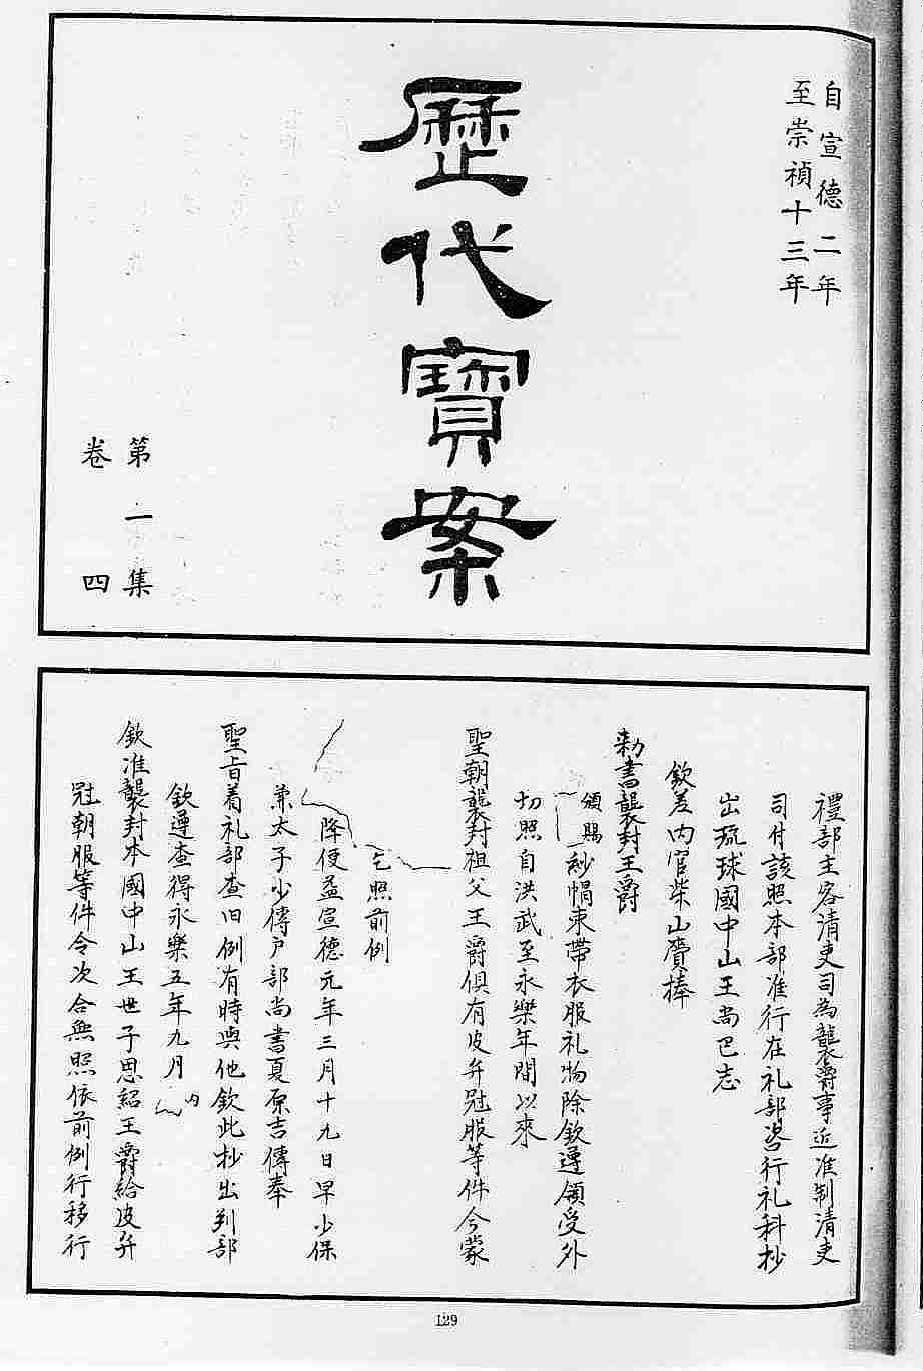 自宣德二年
至崇禎十三年
歷代寶案
第一集
卷四
禮部主客清吏司為襲爵事近准制清吏
司付該照本部准行在礼部咨行礼科抄
出琉球國中山王尚巴志
欽差内官柴山賫捧
勅書襲封王爵
頒賜紗帽束帶衣服礼物除欽遵領受外
切照自洪武至永樂年間以來
聖朝襲封祖父王爵俱有皮弁冠服等件今蒙
乞照前例
降便益宣德元年三月十九日早少保
兼太子少傅户部尚書夏原吉傳奉
聖旨着礼部查旧例有時與他欽此抄出到部
欽遵查得永樂五年九月内
欽准襲封本國中山王世子思紹王爵給皮弁
冠朝服等件今次合無照依前例行移行
129